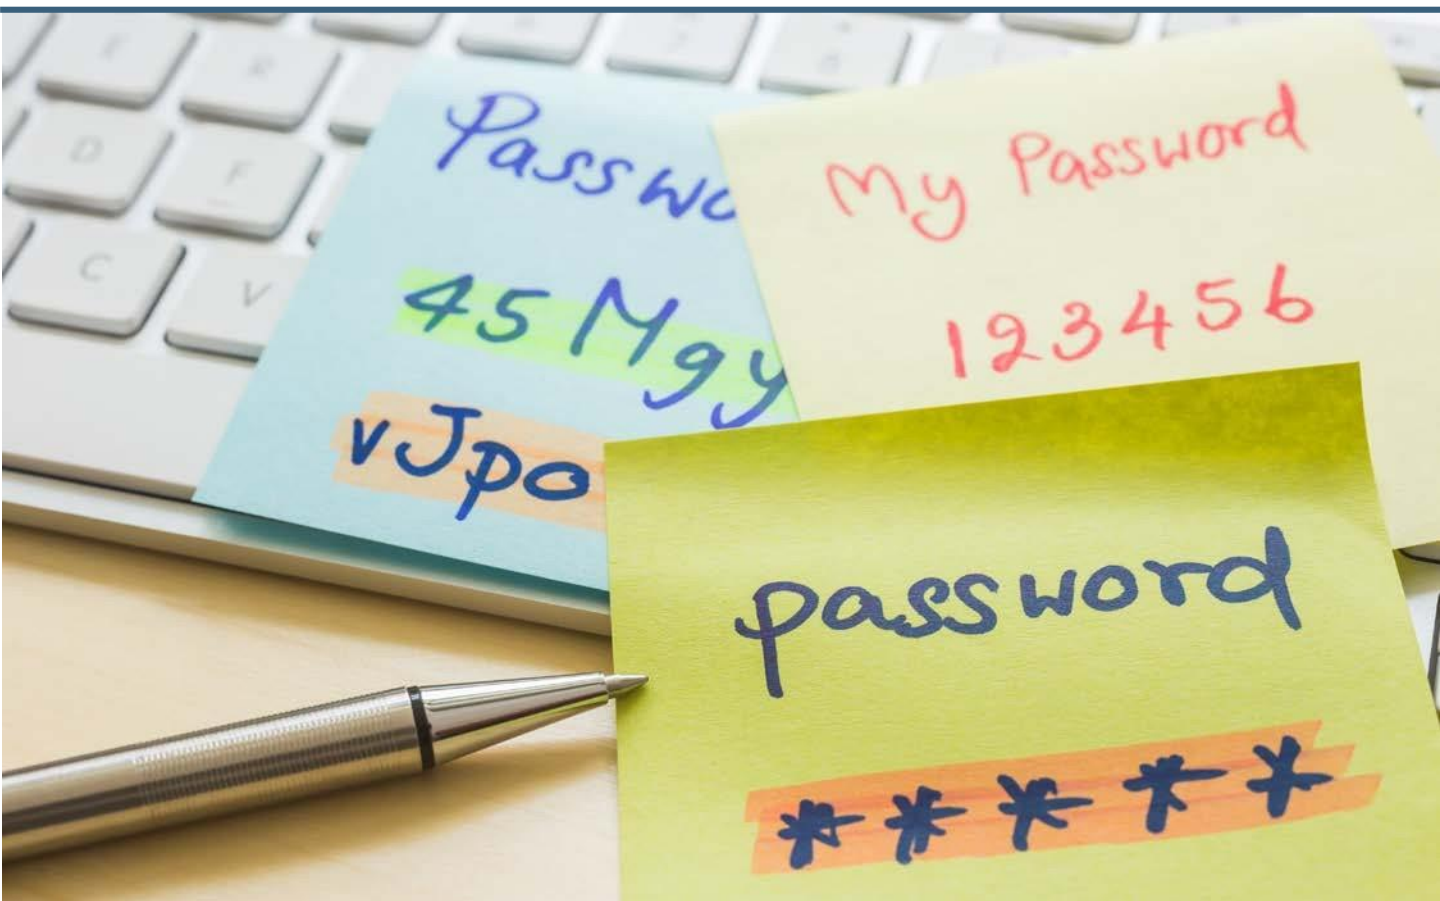 Passwo
45 Mgy
vJpo
My Password
123456
password
*****
E
R
D
F
C
V